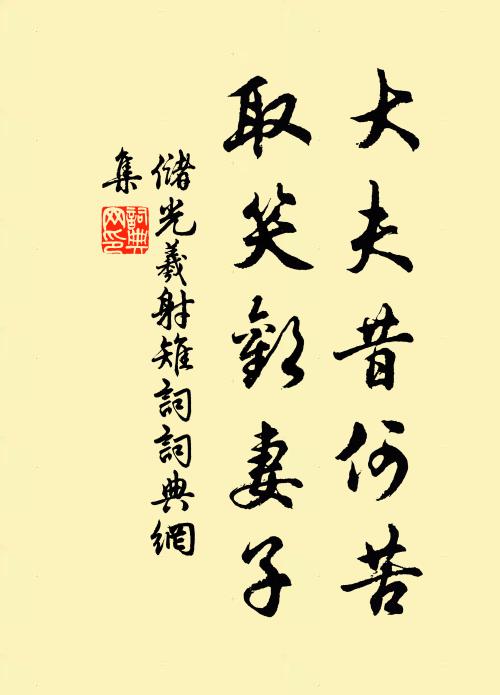 大夫昔何苦
取笑歡妻子
儲光羲射雉詞詞典網
集
詞典
网印